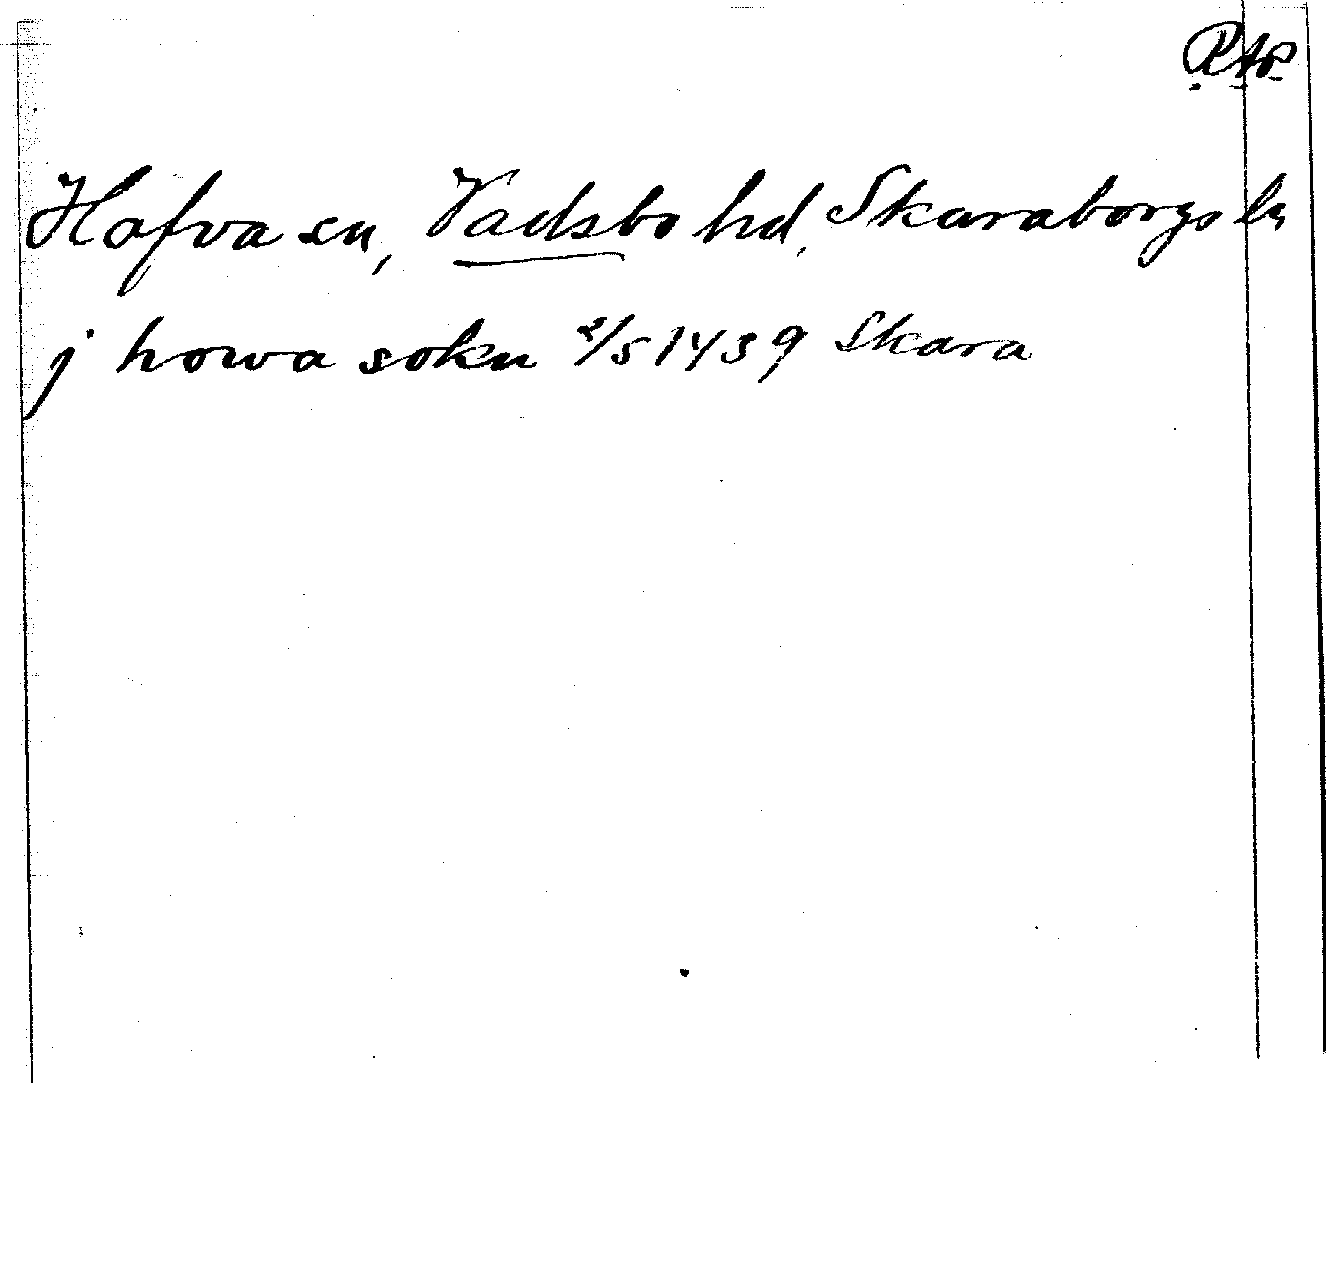 RAP
Hofva sn, Vadsbo hd, Skaraborgs ln
j howa sokn 2/5 1439 Skara